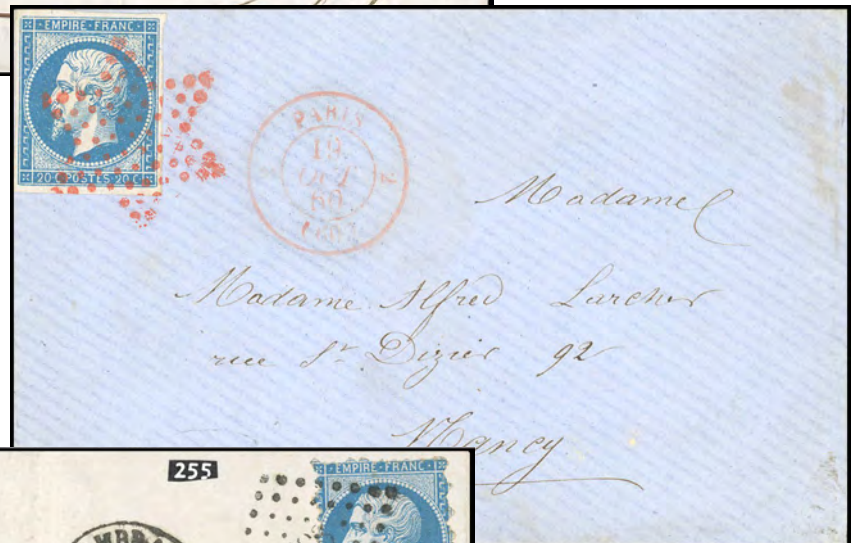 EMPIRE·FRANC·
20 C. POSTES 20 C.
PARIS
19
OCT
60
(60)
Madame
Madame Alfred Larcher
rue St Dizier 92
Nancy
255
EMPIRE·FRANC·